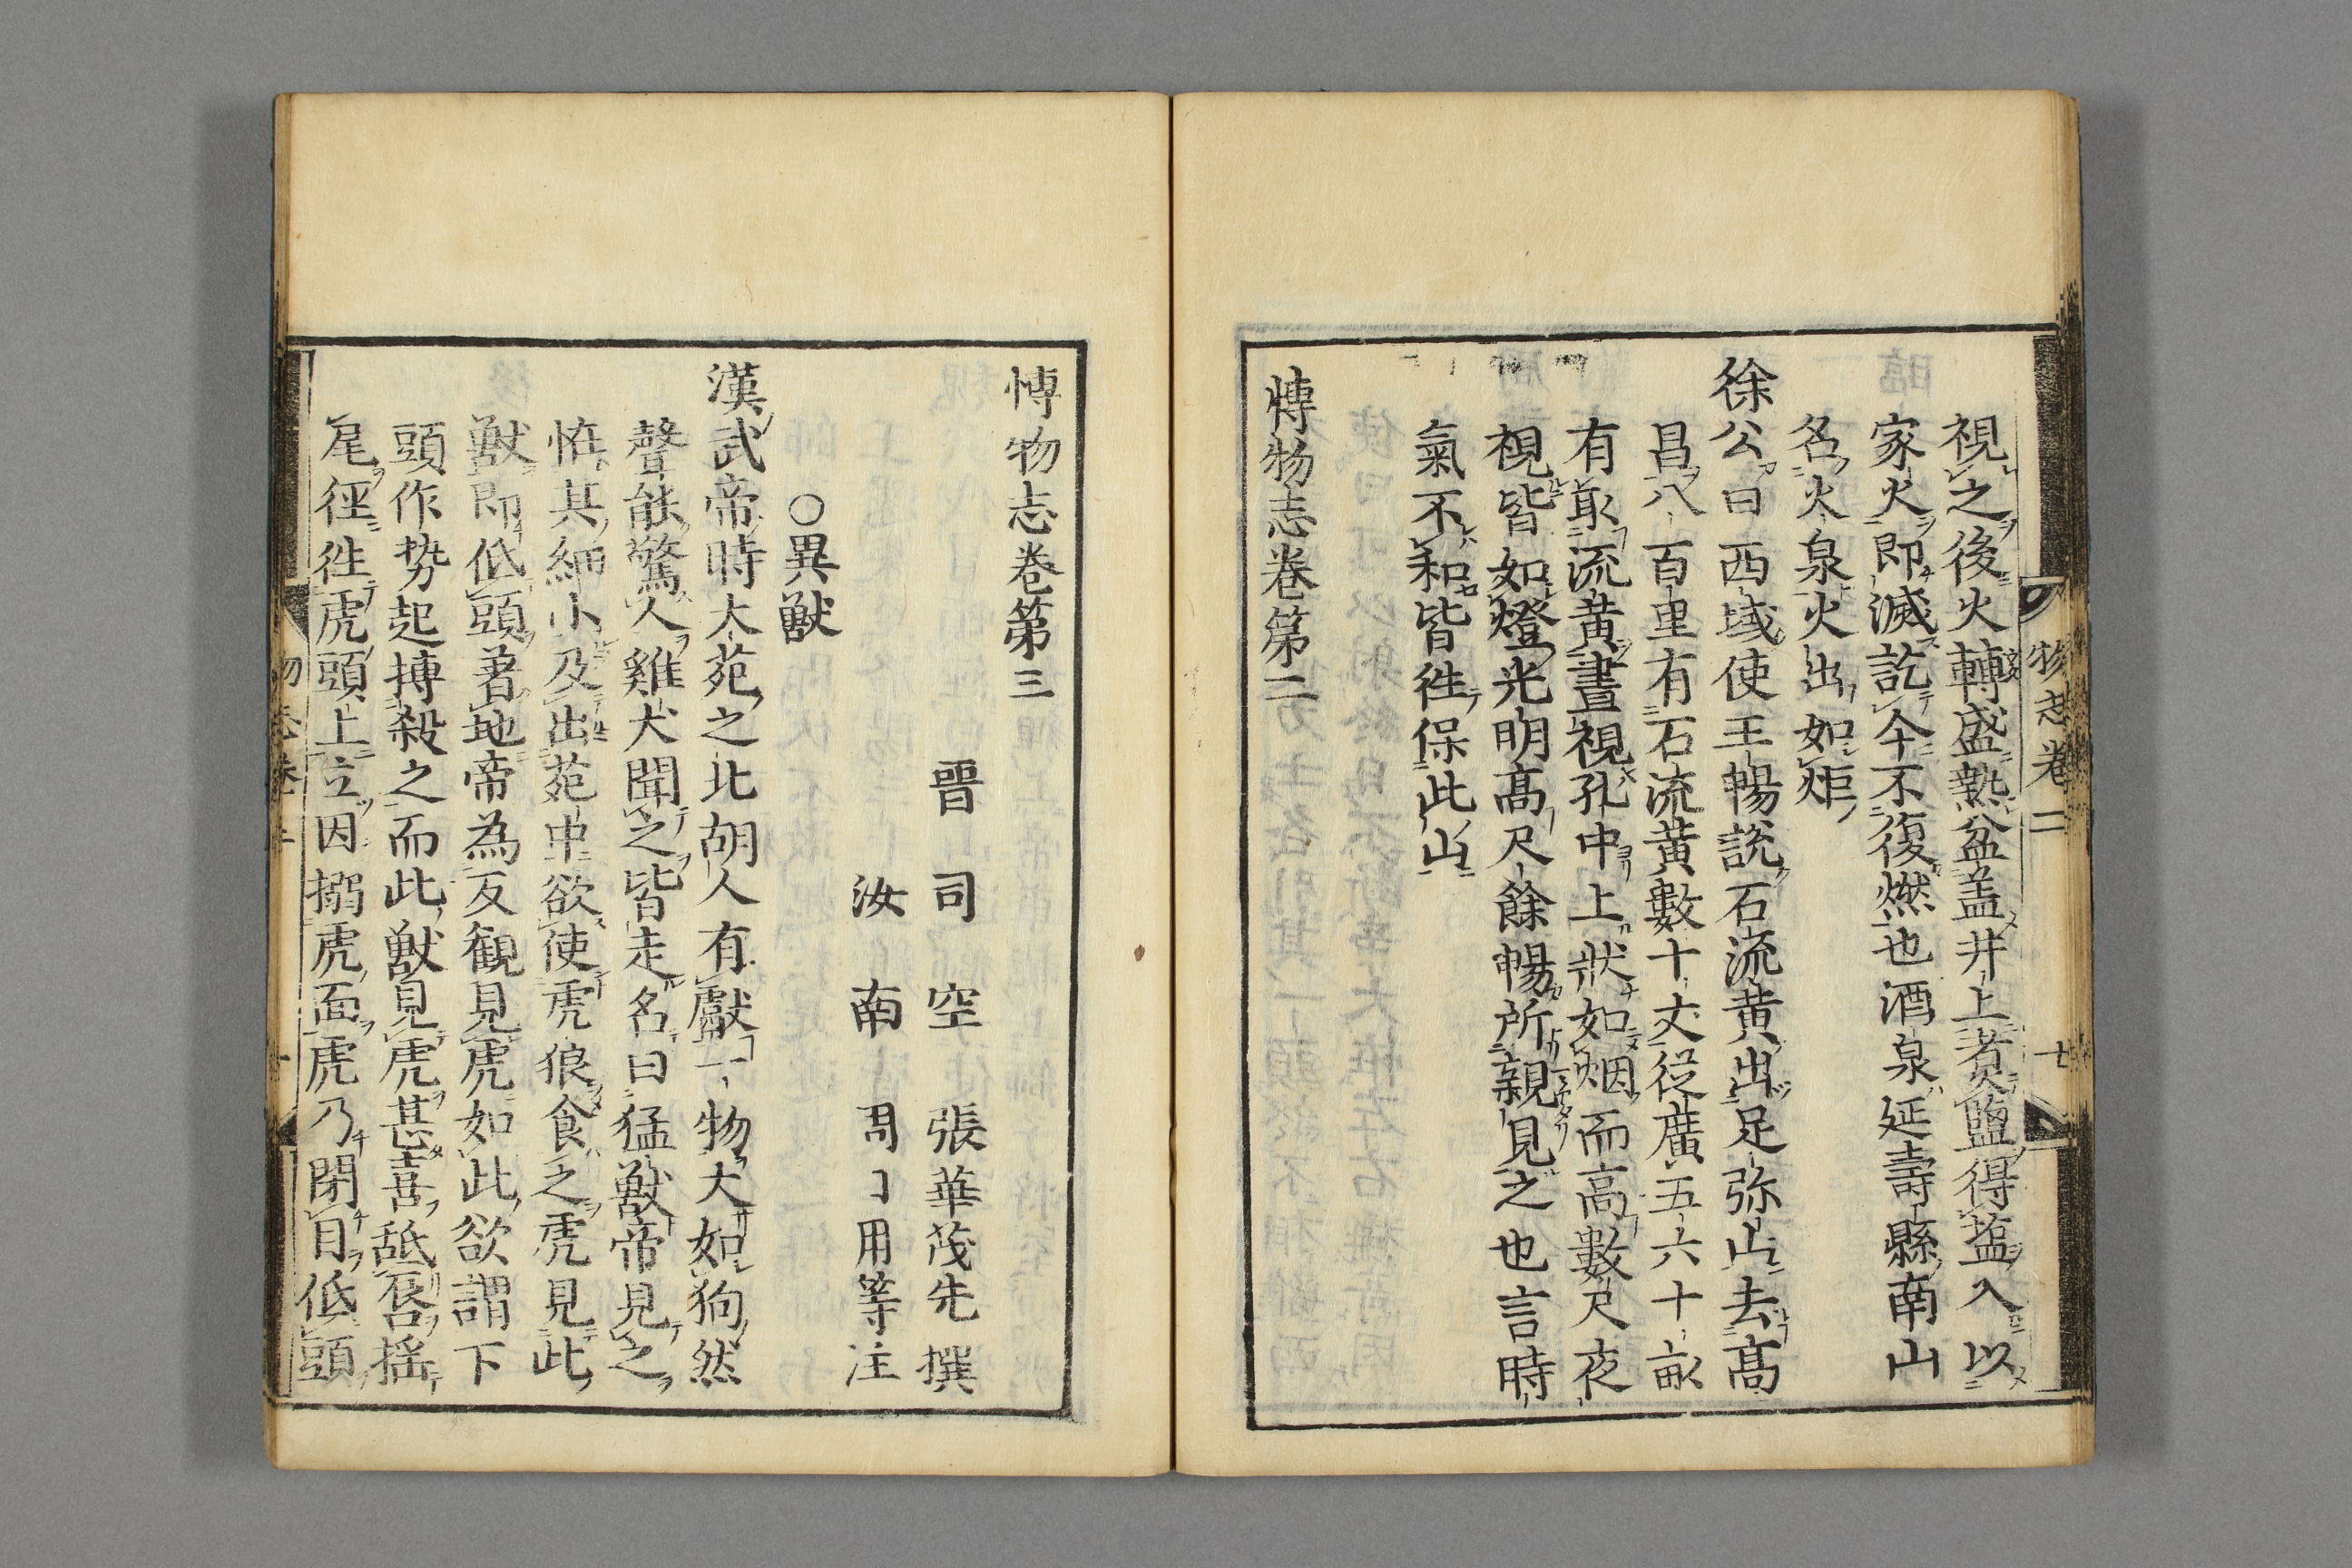 視之後火轉盛熱盆盖井上煑鹽得塩入以
家火即滅訖今不復燃也酒泉延壽縣南山
名火泉火出如炬
徐公曰西域使王暢說石流黄出足弥山去髙
昌八百里有石流黄數十丈従廣五六十畝
有取流黄晝視孔中上狀如烟而高數尺夜
視皆如燈光明髙尺餘暢所親見之也言時
氣不和皆徃保此山
博物志卷第二
物志卷二
七
博物志卷第三
晋司空張華茂先撰
汝南周日用等注
○異獸
漢武帝時大苑之北胡人有獻一物大如狗然
聲能驚人雞犬聞之皆走名曰猛獸帝見之
恠其細小及出苑中欲使虎狼食之虎見此
獸即低頭著地帝為反観見虎如此欲謂下
頭作势起搏殺之而此獸見虎甚喜舐唇揺
尾徑徃虎頭上立因搦虎面虎乃閉目低頭